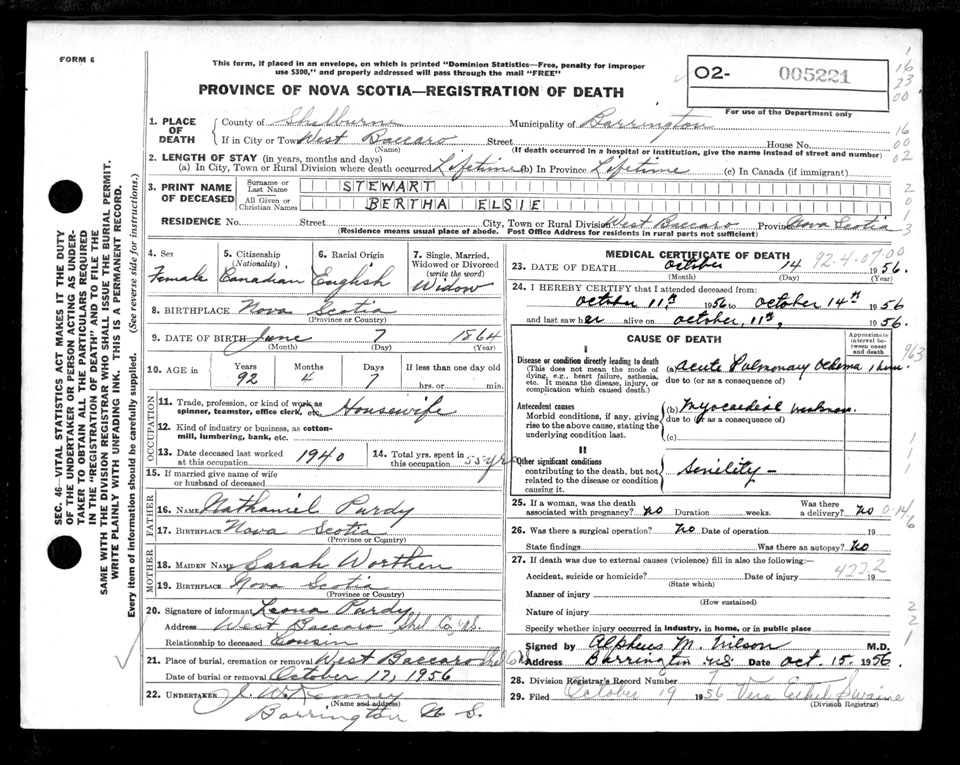 FORM 6
This form, if placed in an envelope, on which is printed "Dominion Statistics—Free, penalty for improper
use $300," and properly addressed will pass through the mail "FREE"
PROVINCE OF NOVA SCOTIA—REGISTRATION OF DEATH
O2- 005221
For use of the Department only
1. PLACE OF DEATH
County of Shelburne Municipality of Barrington
If in City or Town West Baccaro Street House No.
(Name) (If death occurred in a hospital or institution, give the name instead of street and number)
2. LENGTH OF STAY (in years, months and days)
(a) In City, Town or Rural Division where death occurred Lifetime (b) In Province Lifetime (c) In Canada (if immigrant)
3. PRINT NAME OF DECEASED
Surname or Last Name STEWART
All Given or Christian Names BERTHA ELSIE
RESIDENCE No. Street City, Town or Rural Division West Baccaro Province Nova Scotia
(Residence means usual place of abode. Post Office Address for residents in rural parts not sufficient)
4. Sex
Female
5. Citizenship
(Nationality)
Canadian
6. Racial Origin
English
7. Single, Married,
Widowed or Divorced
(write the word)
Widow
8. BIRTHPLACE Nova Scotia
(Province or Country)
9. DATE OF BIRTH June 7 1864
(Month) (Day) (Year)
10. AGE in
Years Months Days If less than one day old
92 4 7 hrs. or min.
OCCUPATION
11. Trade, profession, or kind of work as
spinner, teamster, office clerk, etc. Housewife
12. Kind of industry or business, as cotton-
mill, lumbering, bank, etc.
13. Date deceased last worked
at this occupation 1940
14. Total yrs. spent in
this occupation 55 yrs
15. If married give name of wife
or husband of deceased
FATHER
16. NAME Nathaniel Purdy
17. BIRTHPLACE Nova Scotia
(Province or Country)
MOTHER
18. MAIDEN NAME Sarah Worthen
19. BIRTHPLACE Nova Scotia
(Province or Country)
20. Signature of informant Leona Purdy
Address West Baccaro Shel Co. N.S.
Relationship to deceased Cousin
21. Place of burial, cremation or removal West Baccaro Shel Co
Date of burial or removal October 17, 1956
22. UNDERTAKER
(Name and address)
Barrington N S.
MEDICAL CERTIFICATE OF DEATH
23. DATE OF DEATH October 14 1956.
92-4-07-00
24. I HEREBY CERTIFY that I attended deceased from:
October 11th 1956 to October 14th 1956
and last saw her alive on October 11th, 1956.
CAUSE OF DEATH
Approximate
interval be-
tween onset
and death
I
Disease or condition directly leading to death
(This does not mean the mode of
dying, e.g., heart failure, asthenia,
etc. It means the disease, injury, or
complication which caused death.)
(a) Acute Pulmonary Oedema 1 hour
due to (or as a consequence of)
Antecedent causes
Morbid conditions, if any, giving
rise to the above cause, stating the
underlying condition last.
(b) Myocardial weakness.
due to (or as a consequence of)
(c)
II
Other significant conditions
contributing to the death, but not
related to the disease or condition
causing it.
Senility—
25. If a woman, was the death
associated with pregnancy? No Duration weeks. Was there
a delivery? No
26. Was there a surgical operation? No Date of operation 19
State findings Was there an autopsy? No
27. If death was due to external causes (violence) fill in also the following:—
Accident, suicide or homicide? Date of injury 19
(State which)
422.2
Manner of injury
(How sustained)
Nature of injury
Specify whether injury occurred in industry, in home, or in public place
Signed by Alpheus M. Wilson M.D.
Address Barrington NS Date Oct. 15. 1956.
28. Division Registrar's Record Number 7
29. Filed October 19 1956 Vera Ethel Swaine
(Division Registrar)
SEC. 46—VITAL STATISTICS ACT MAKES IT THE DUTY
OF THE UNDERTAKER OR PERSON ACTING AS UNDER-
TAKER TO OBTAIN ALL THE PARTICULARS REQUIRED
IN THE "REGISTRATION OF DEATH" AND TO FILE THE
SAME WITH THE DIVISION REGISTRAR WHO SHALL ISSUE THE BURIAL PERMIT.
WRITE PLAINLY WITH UNFADING INK. THIS IS A PERMANENT RECORD.
Every item of information should be carefully supplied. (See reverse side for instructions.)
1
16
23
00
16
00
02
2
0
1
3
963
1
1
1
0-14/6
2
2
1